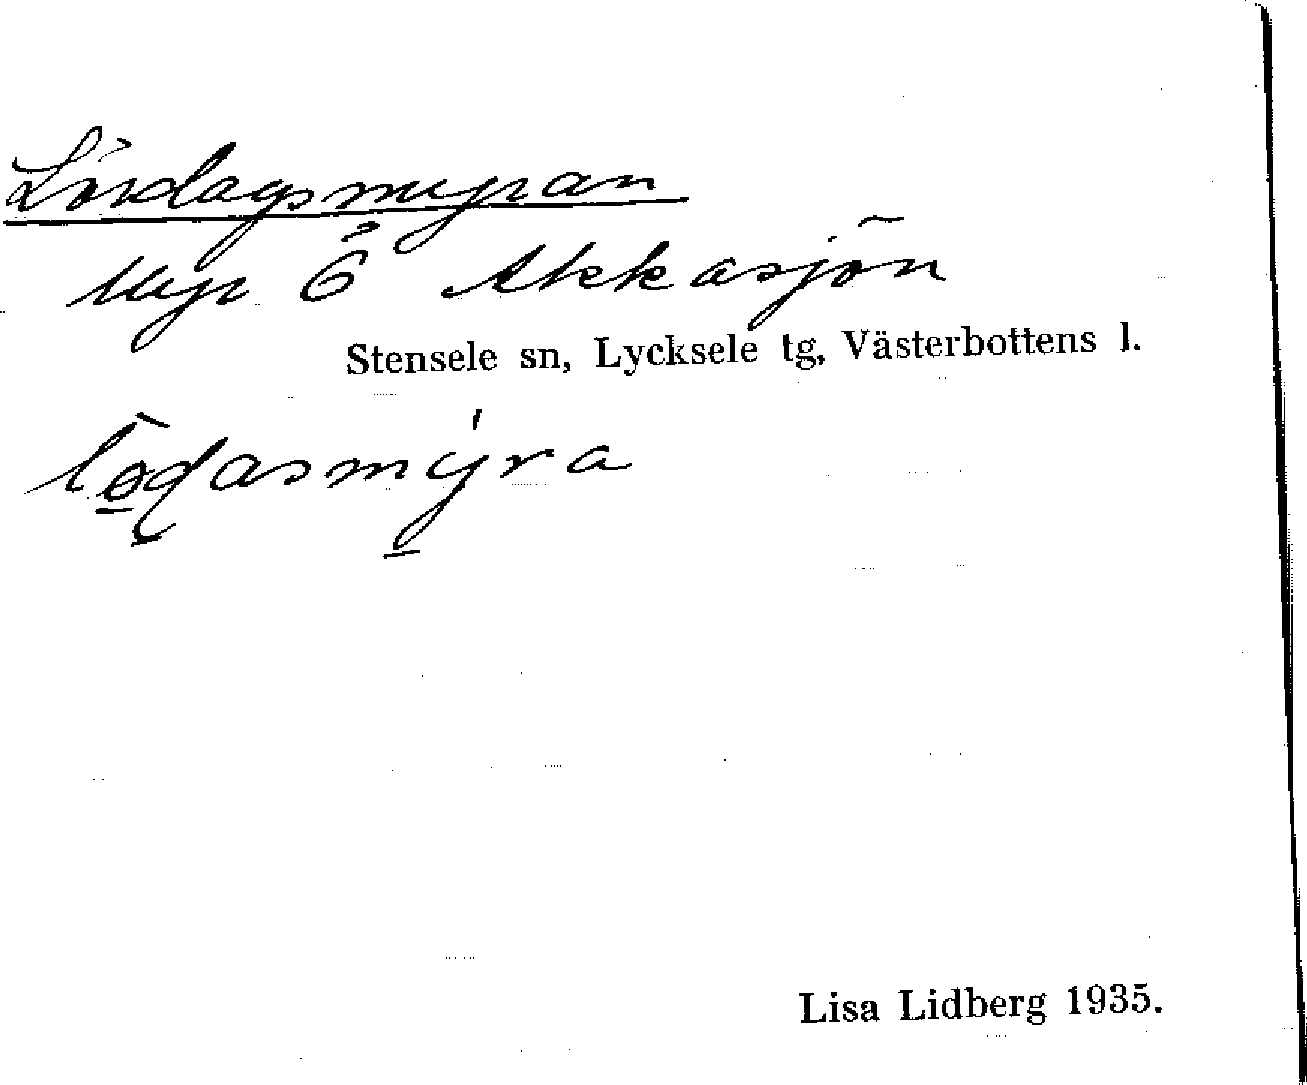 Lördagsmyran
Myr Ö Akkasjön
Stensele sn, Lycksele tg, Västerbottens l.
lö̲dasmý̲ra
Lisa Lidberg 1935.